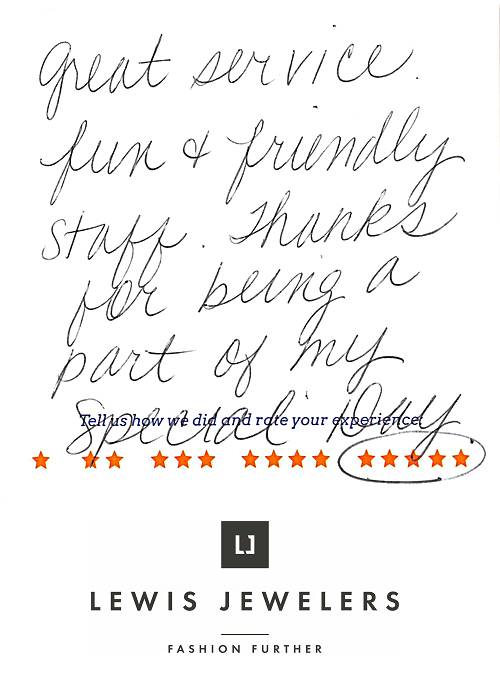 Great service.
fun & friendly
staff. Thanks
for being a
part of my
Special Day
Tell us how we did and rate your experience!
LJ
LEWIS JEWELERS
FASHION FURTHER